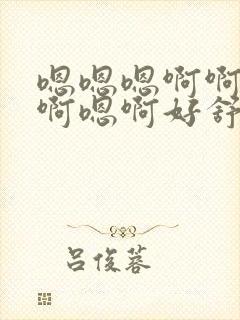 嗯嗯嗯啊啊
啊嗯啊好舒
吕俊蓉